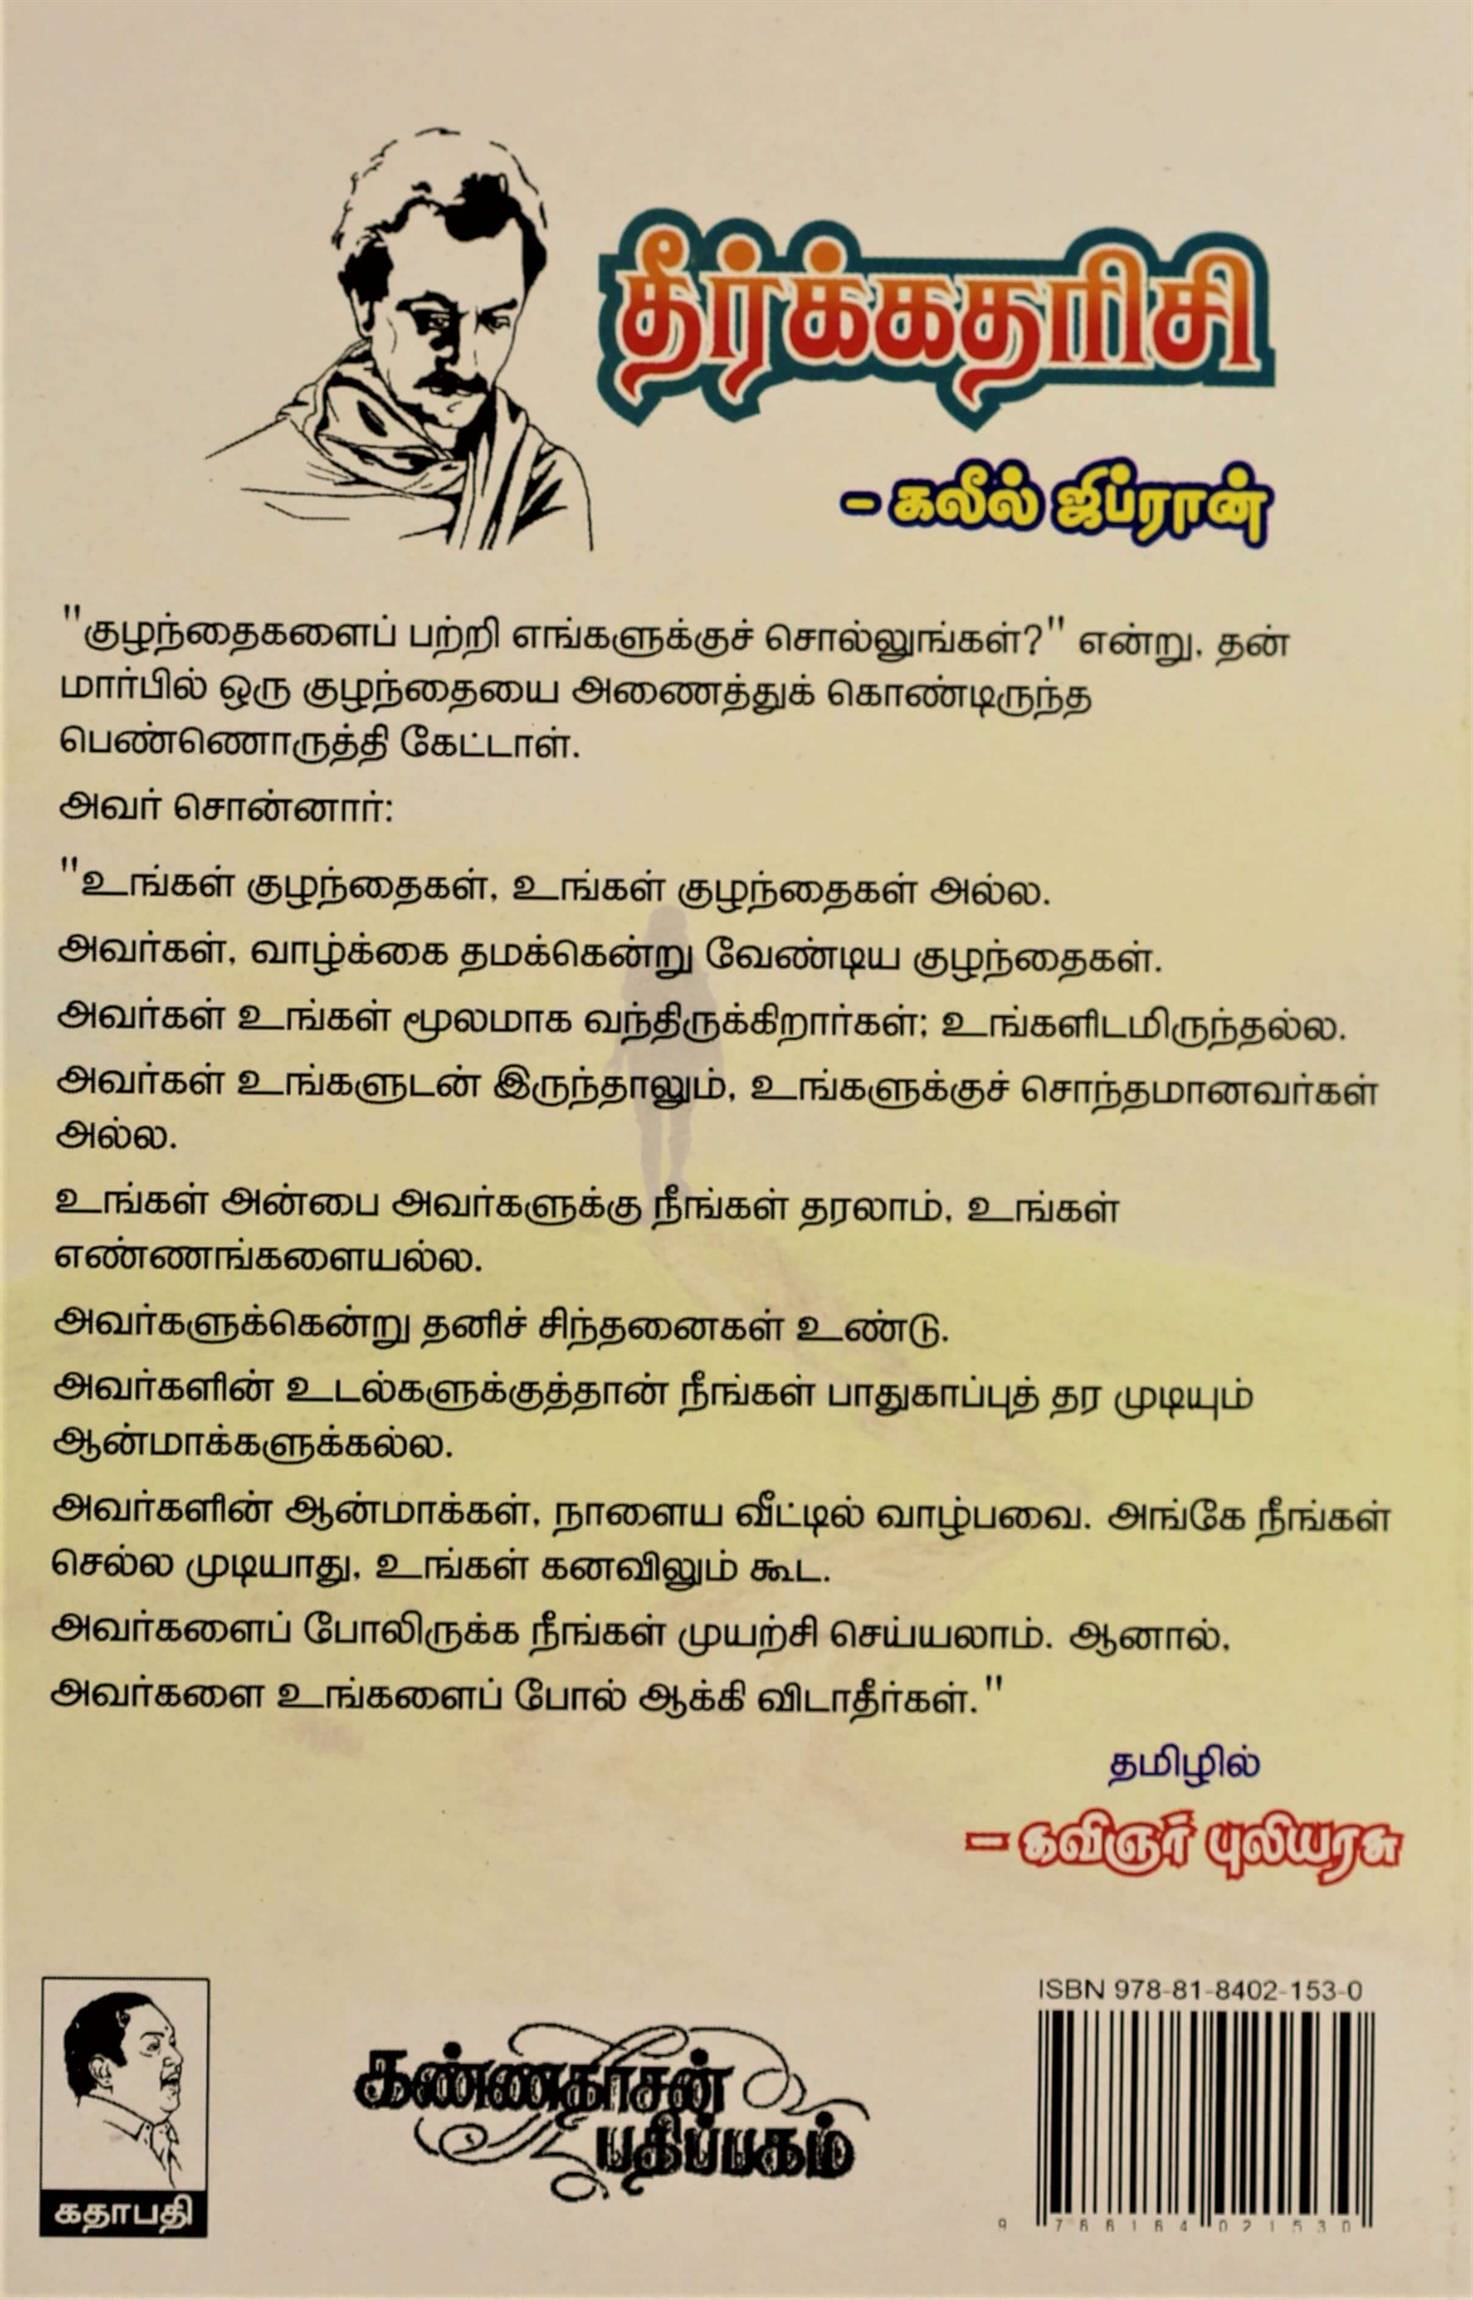 தீர்க்கதரிசி
- கலீல் ஜிப்ரான்
"குழந்தைகளைப் பற்றி எங்களுக்குச் சொல்லுங்கள்?" என்று, தன்
மார்பில் ஒரு குழந்தையை அணைத்துக் கொண்டிருந்த
பெண்ணொருத்தி கேட்டாள்.
அவர் சொன்னார்:
"உங்கள் குழந்தைகள், உங்கள் குழந்தைகள் அல்ல.
அவர்கள், வாழ்க்கை தமக்கென்று வேண்டிய குழந்தைகள்.
அவர்கள் உங்கள் மூலமாக வந்திருக்கிறார்கள்; உங்களிடமிருந்தல்ல.
அவர்கள் உங்களுடன் இருந்தாலும், உங்களுக்குச் சொந்தமானவர்கள்
அல்ல.
உங்கள் அன்பை அவர்களுக்கு நீங்கள் தரலாம், உங்கள்
எண்ணங்களையல்ல.
அவர்களுக்கென்று தனிச் சிந்தனைகள் உண்டு.
அவர்களின் உடல்களுக்குத்தான் நீங்கள் பாதுகாப்புத் தர முடியும்
ஆன்மாக்களுக்கல்ல.
அவர்களின் ஆன்மாக்கள், நாளைய வீட்டில் வாழ்பவை. அங்கே நீங்கள்
செல்ல முடியாது, உங்கள் கனவிலும் கூட.
அவர்களைப் போலிருக்க நீங்கள் முயற்சி செய்யலாம். ஆனால்,
அவர்களை உங்களைப் போல் ஆக்கி விடாதீர்கள்."
தமிழில்
- கவிஞர் புலியரசு
ISBN 978-81-8402-153-0
கண்ணதாசன்
பதிப்பகம்
கதாபதி
9 788184 021530